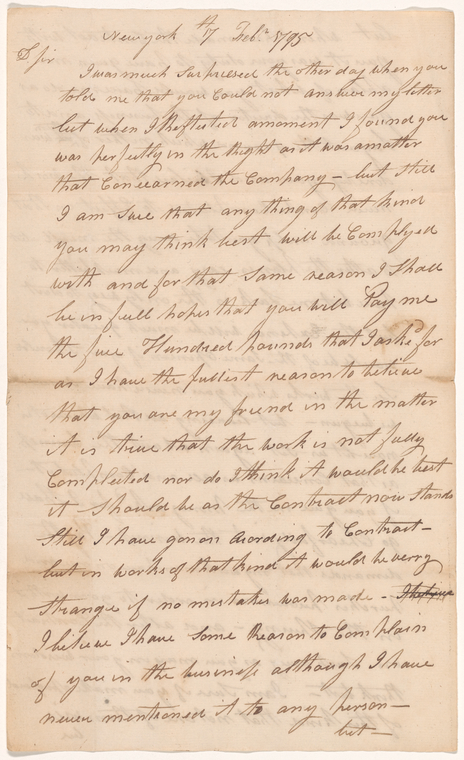 New york 7th Feb.y 1795
D Sir
I was much Surpriesed the other day when you
told me that you Could not answer my letter
but when I Reflected a moment I found you
was perfectly in the Right as it was a matter
that Conearned the Company – but Still
I am Sure that any thing of that kind
you may think best will be Complyed
with and for that Same reason I Shall
be in full hopes that you will Pay me
the five Hundred pounds that I askd for
as I have the fullest reason to believe
that you are my friend in the matter
it is true that the work is not fully
Complected nor do I think it would be best
it Should be as the Contract now Stands
Still I have gon on acording to Contract –
but in works of that kind it would be verry
Strange if no mistakes was made –
I believe I have Some Reason to Complain
of you in the business although I have
never mentioned it to any person –
but –